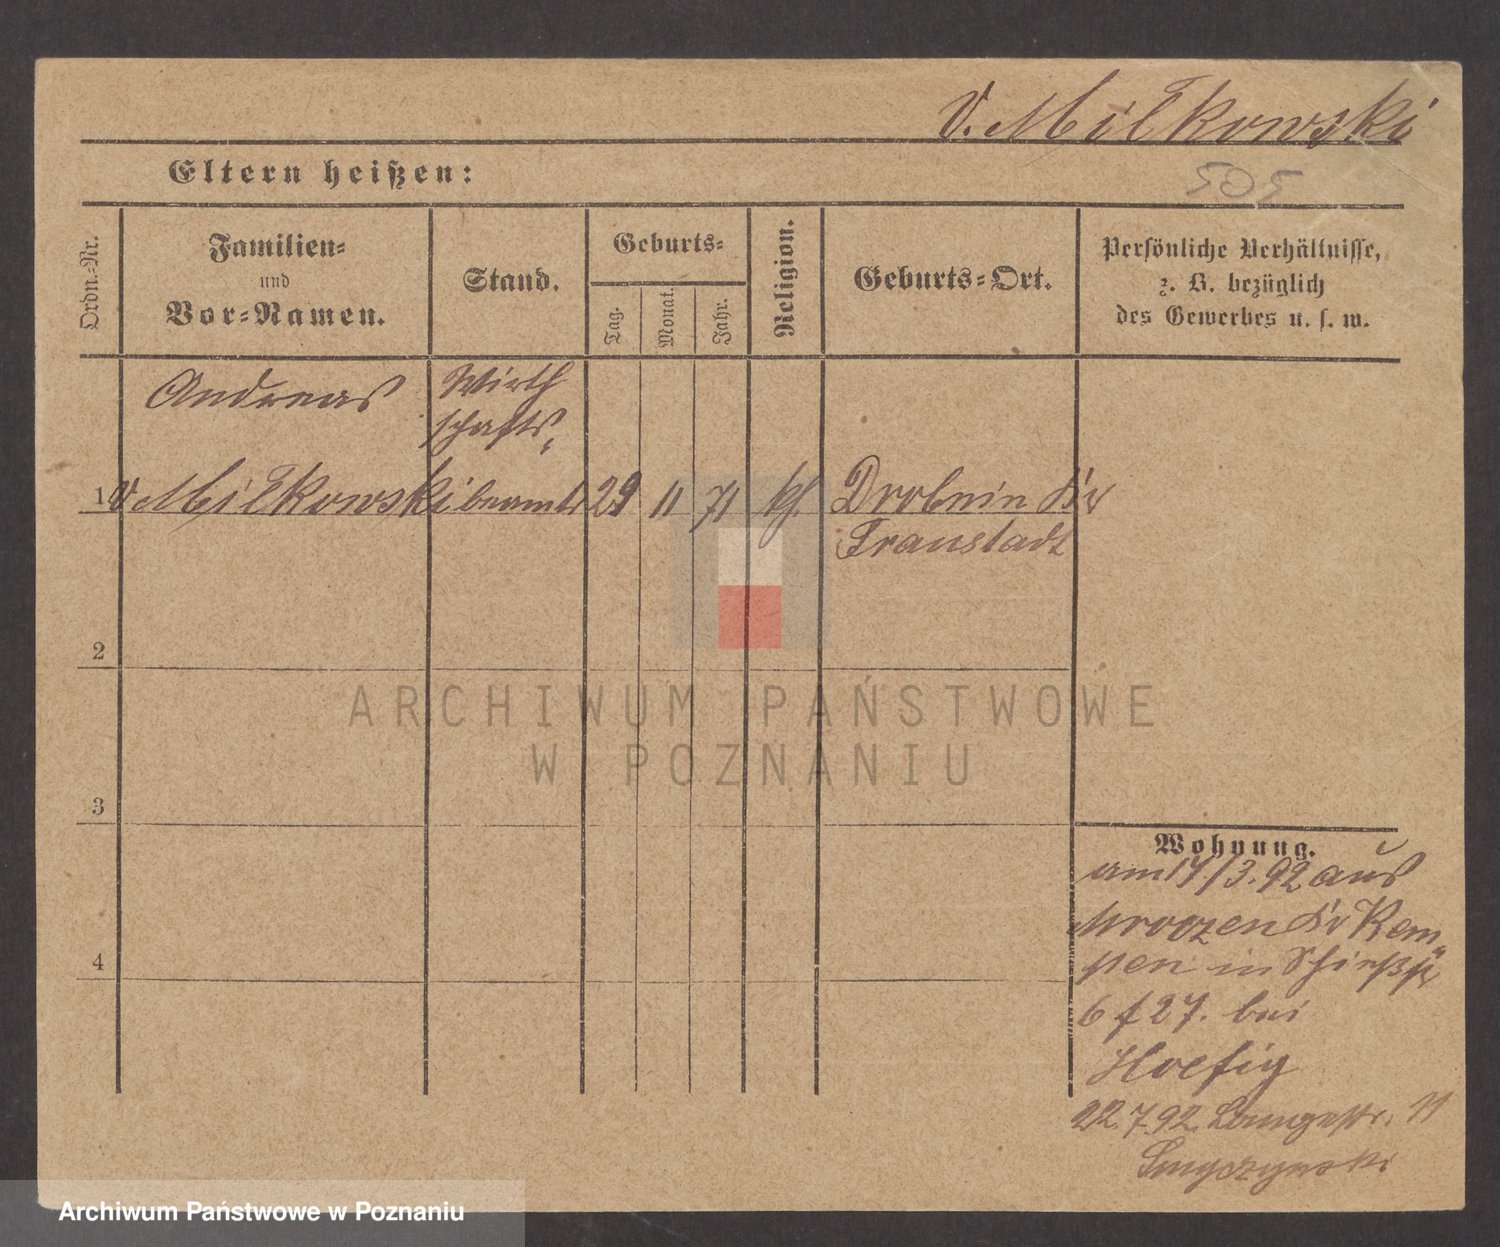 v. Milkowski
Eltern heißen:
505
Ordn.-Nr.
Familien-
und
Vor-Namen.
Stand.
Geburts-
Tag.
Monat.
Jahr.
Religion.
Geburts-Ort.
Persönliche Verhältnisse,
z. B. bezüglich
des Gewerbes u. s. w.
Andreas
Wirth
schafts-
1 v. Milkowski beamter 29 11 71 kth. Drobnin Kr
Fraustadt
2
ARCHIWUM PAŃSTWOWE
W POZNANIU
3
Wohnung.
am 17/3.92 aus
Mroczen Kr Kem-
4
pen in Schießstr
6 f 27. bei
Hoefig
22.7.92 Langestr. 11
Smyczynski
Archiwum Państwowe w Poznaniu